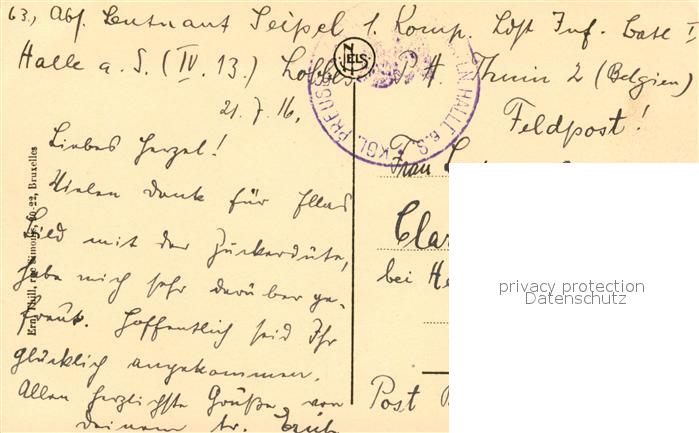 63, Abs. Leutnant Seipel 1. Komp. Ldst Inf. Batl I
Halle a. S. (IV. 13.) Lobbes P. H. Thuin 2 (Belgien)
21. 7. 16,
Feldpost!
NELS
KGL. PREUSS. HALLE a. S.
Liebes Herzel!
Vielen Dank für Ellas
Bild mit der Zuckerdüte,
habe mich sehr darüber ge-
freut. Hoffentlich seid Ihr
glücklich angekommen.
Allen herzlichste Grüße von
Deinem tr.
Frau
Clar
bei He
Post
Ern. Thill, rue Simonis, 20-22, Bruxelles
privacy protection
Datenschutz